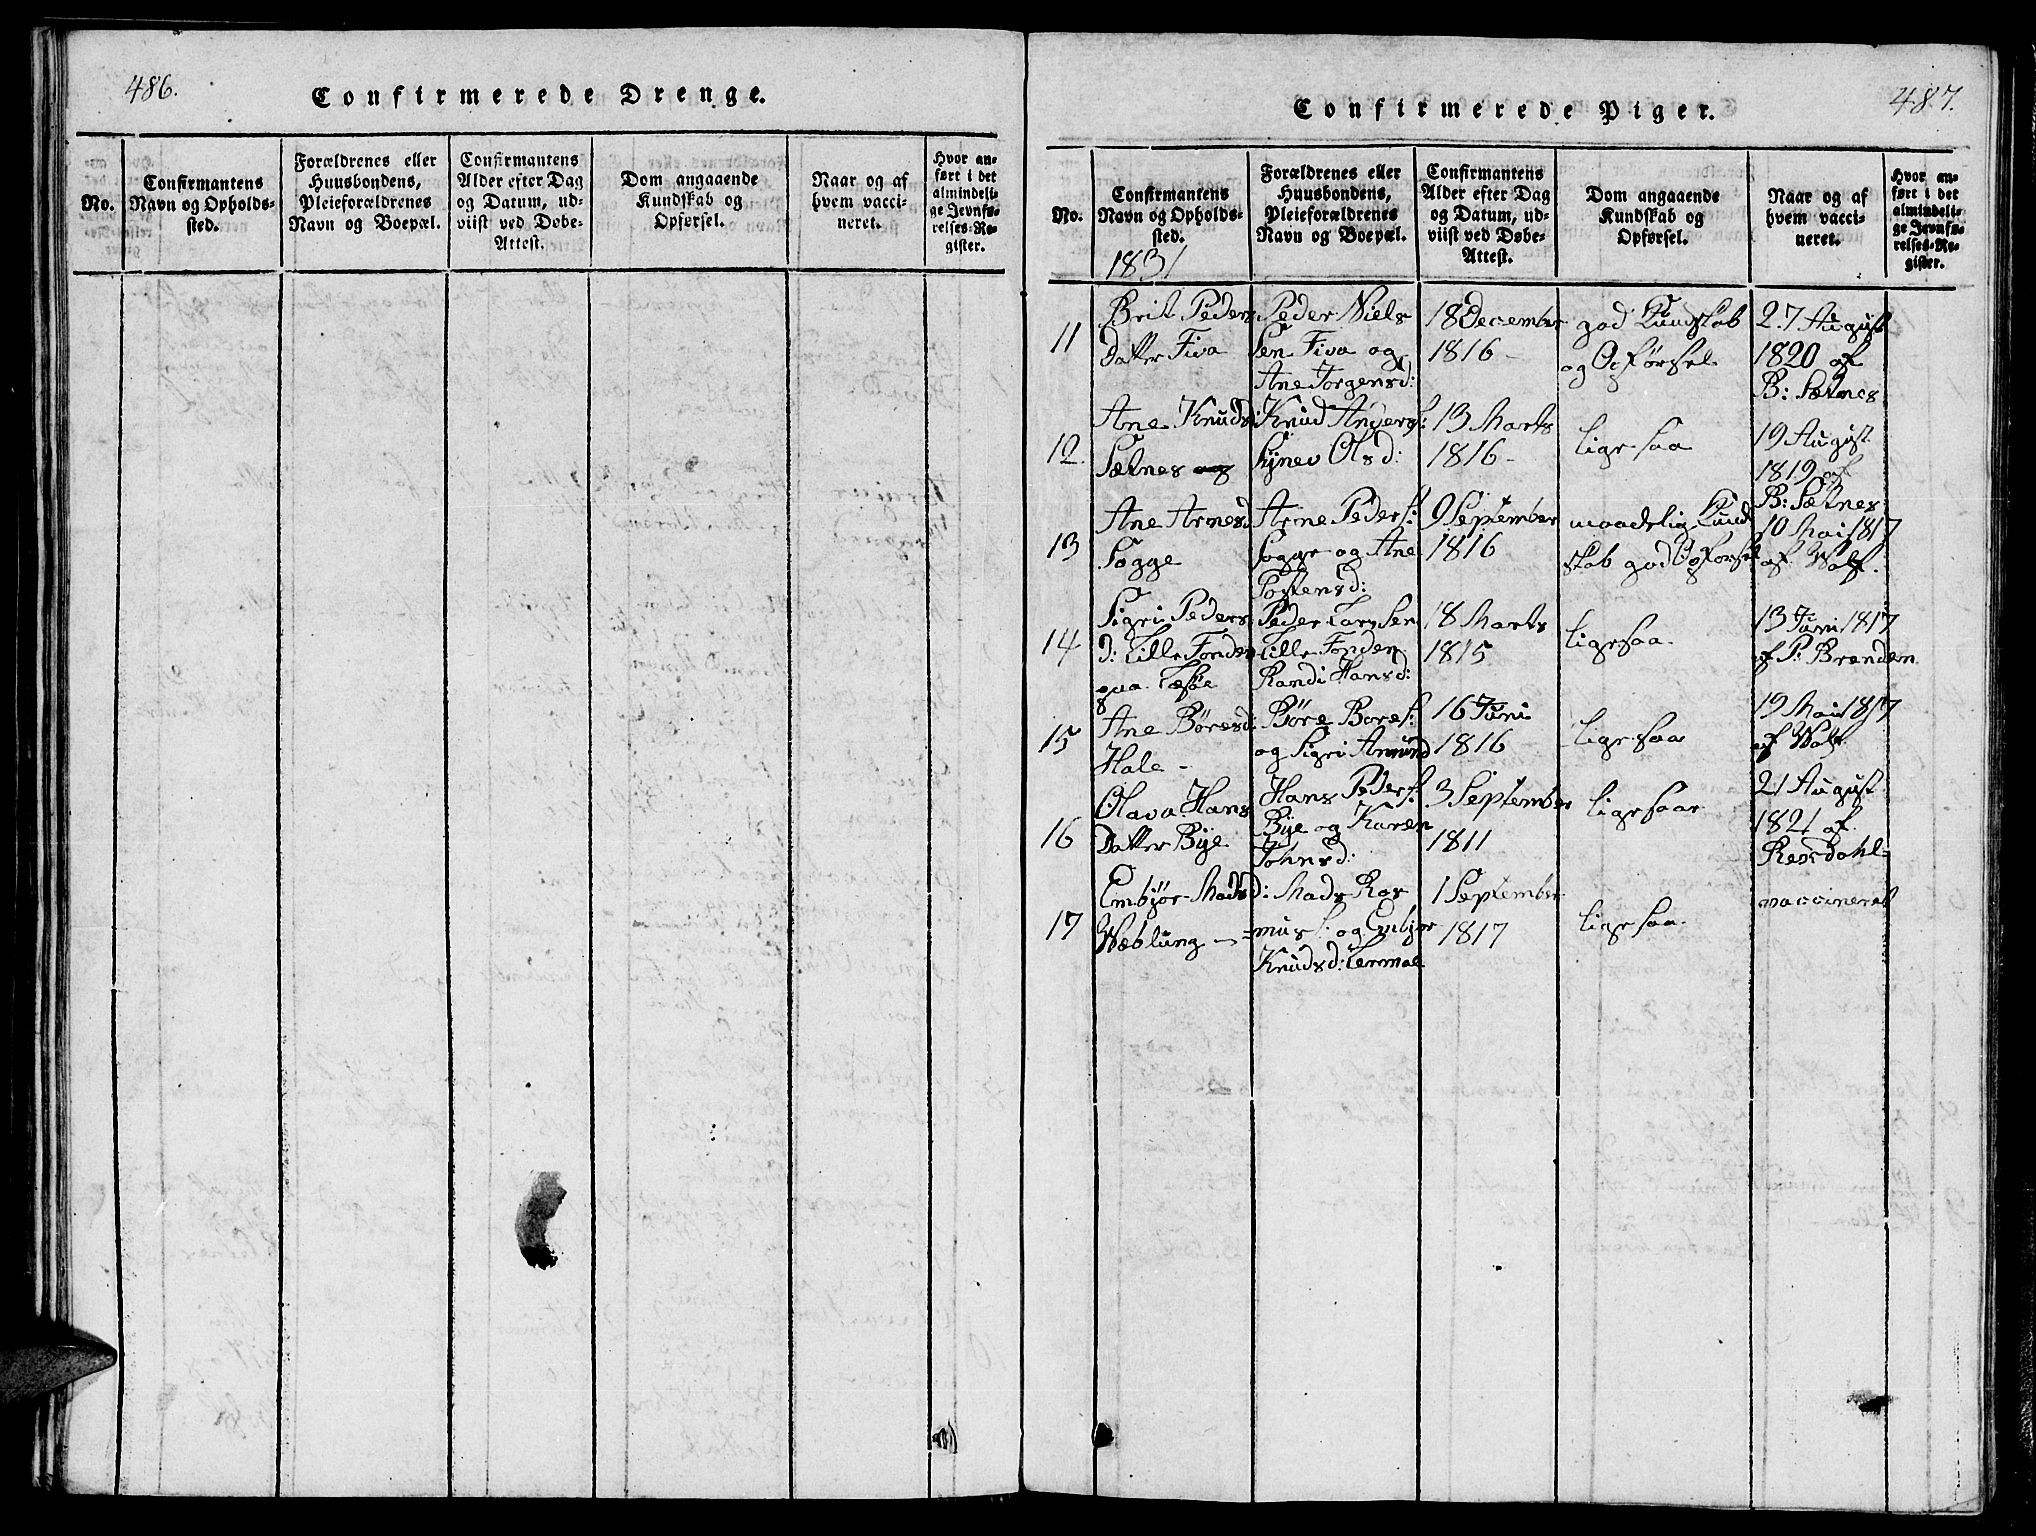 486.
Confirmerede Drenge.
No.
Confirmantens
Navn og Opholds-
sted.
Forældrenes eller
Huusbondens,
Pleieforældrenes
Navn og Boepæl.
Confirmantens
Alder efter Dag
og Datum, ud-
viist ved Døbe-
Attest.
Dom angaaende
Kundskab og
Opførsel.
Naar og af
hvem vacci-
neret.
Hvor an-
ført i det
almindeli-
ge Jevnfø-
relses-Re-
gister.
487.
Confirmerede Piger.
No.
Confirmantens
Navn og Opholds-
sted.
1831
Forældrenes eller
Huusbondens,
Pleieforældrenes
Navn og Boepæl.
Confirmantens
Alder efter Dag
og Datum, ud-
viist ved Døbe-
Attest.
Dom angaaende
Kundskab og
Opførsel.
Naar og af
hvem vacci-
neret.
Hvor an-
ført i det
almindeli-
ge Jevnfø-
relses-Re-
gister.
11
Brit Peders
Datter Fiva
Peder Niels
Sen Fiva og
Ane Jørgensd:
18 December
1816 -
god Kundskab
og Opførsel
27 August
1820 af
B: Sætnes
12
Ane Knudsd:
Sætnes
Knud Anders:
Synev Olsd:
13 Marts
1816 -
lige saa
19 August
1819 af
B: Sætnes
13
Ane Arnesd
Sogge
Arne Peders:
Sogge og Ane
Postensd:
9 September
1816
maadelig Kund
skab god Opførsel
10 Mai 1817
af Wolf.
14
Sigri Peders
d: Lille Fonden
paa Læsøe
Peder Larssen
Lille Fonden
Randi Hansd:
18 Marts
1815
lige saa
13 Juni 1817
af P: Brenden
15
Ane Børesd:
Hale -
Børe Bores:
og Sigri Amund
16 Juni
1816 -
lige saa
19 Mai 1817
af Wolf
16
Olava Hans
Datter Bye
Hans Peders:
Bye og Karen
Johnsd:
3 September
1811
lige saa
21 August
1821 af
Rensdahl
17
Embjør Madsd:
Wæblung -
Mads Ras
=mus s: og Embjør
Knudsd: Venmae
1 September
1817
lige saa
vaccineret